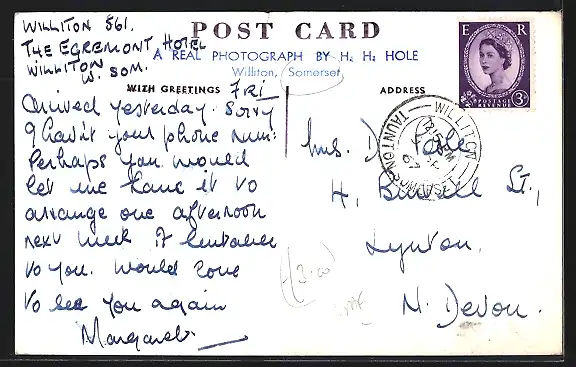 WILLITON 861.
THE EGREMONT HOTEL
WILLITON
W. SOM.
POST CARD
A REAL PHOTOGRAPH BY H. H. HOLE
Williton, Somerset
WITH GREETINGS
ADDRESS
FRI
Arrived yesterday. Sorry
I hav'nt your phone num:
Perhaps you would
let me have it to
arrange one afternoon
next week if suitable
to you. Would love
to see you again
Margaret
Mrs. D
4, St.,
Lynton.
N. Devon.
(3.00)
E R
POSTAGE
REVENUE
3D
WILLITON
TAUNTON